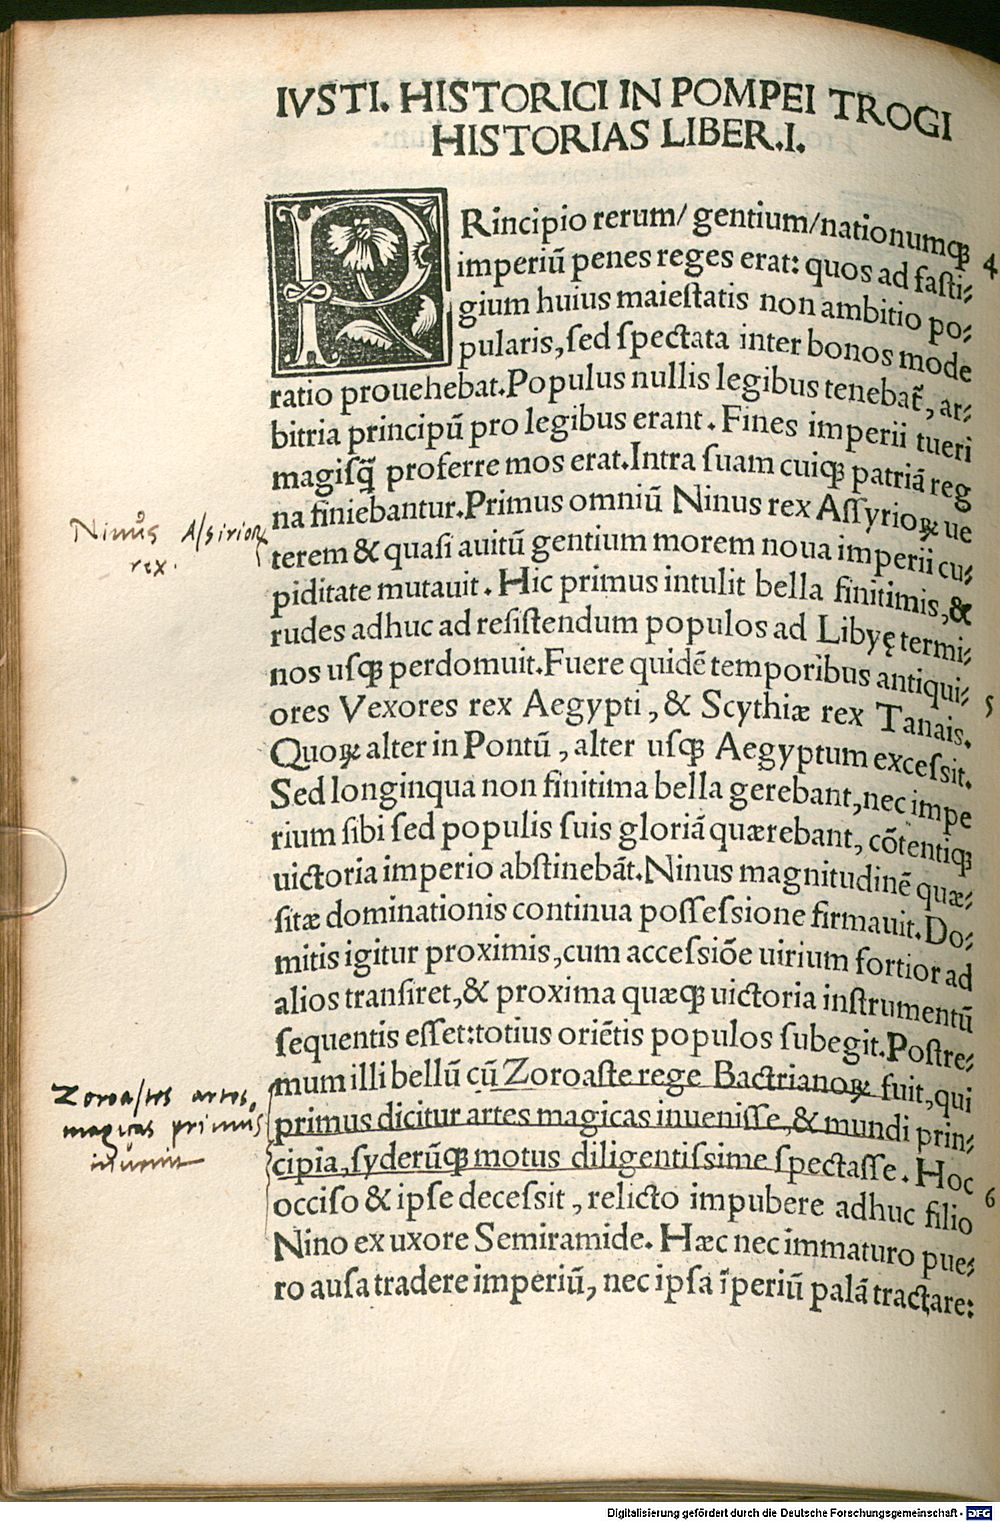 IVSTI. HISTORICI IN POMPEI TROGI
HISTORIAS LIBER.I.
PRincipio rerum/ gentium/nationumqꝫ
imperiũ penes reges erat: quos ad faſti⸗
gium huius maieſtatis non ambitio po⸗
pularis,ſed ſpectata inter bonos mode
ratio prouehebat.Populus nullis legibus tenebat̃, ar⸗
bitria principũ pro legibus erant. Fines imperii tueri
magiſq̃ proferre mos erat.Intra ſuam cuiqꝫ patriã reg
na finiebantur.Primus omniũ Ninus rex Aſſyrioꝝ ue
terem & quaſi auitũ gentium morem noua imperii cu⸗
piditate mutauit. Hic primus intulit bella finitimis,&
rudes adhuc ad reſiſtendum populos ad Libyę termi⸗
nos uſqꝫ perdomuit.Fuere quidẽ temporibus antiqui⸗
ores Vexores rex Aegypti, & Scythiæ rex Tanais.
Quoꝝ alter in Pontũ, alter uſqꝫ Aegyptum exceſsit.
Sed longinqua non finitima bella gerebant,nec impe
rium ſibi ſed populis ſuis gloriã quærebant, cõtentiqꝫ
uictoria imperio abſtinebãt.Ninus magnitudinẽ quæ⸗
ſitæ dominationis continua poſſeſsione firmauit.Do⸗
mitis igitur proximis,cum acceſsiõe uirium fortior ad
alios tranſiret,& proxima quæqꝫ uictoria inſtrumentũ
ſequentis eſſet:totius oriẽtis populos ſubegit.Poſtre⸗
mum illi bellũ cũ Zoroaſte rege Bactrianoꝝ fuit,qui
primus dicitur artes magicas inueniſſe,& mundi prin⸗
cipia,ſyderũqꝫ motus diligentiſsime ſpectaſſe. Hoc
occiſo & ipſe deceſsit, relicto impubere adhuc filio
Nino ex uxore Semiramide. Hæc nec immaturo pue⸗
ro auſa tradere imperiũ, nec ipſa ĩperiũ palã tractare:
4
5
6
Ninus Aſsirioꝝ
rex.
Zoroaſtes artes
magicas primus
inuenit
Digitalisierung gefördert durch die Deutsche Forschungsgemeinschaft - DFG